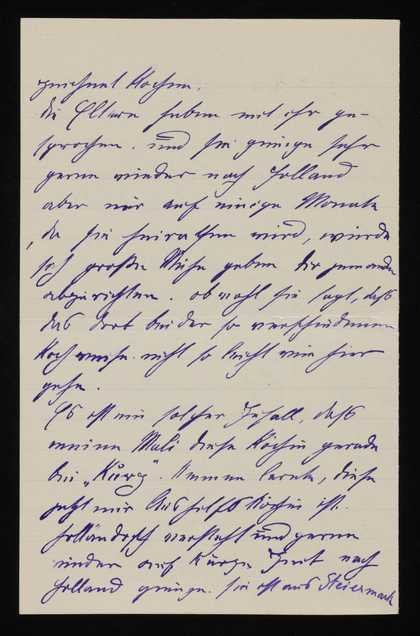 zeichnet kochen.
die Eltern haben mit ihr ge-
sprochen. und sie ginge sehr
gerne wieder nach Holland
aber nur auf einige Monate
da sie heirathen wird, würde
sich große Mühe geben dir jemanden
abzurichten. obwohl sie sagt, daß
das dort bei der so verschiedenen
Kochweise nicht so leicht wie hier
gehe.
Es ist ein solcher Zufall, daß
meine Mali diese Köchin gerade
bei „Kurz". kennen lernte, die
jetzt nur Aushilfsköchin ist.
Holländisch versteht und gerne
wieder auf kurze Zeit nach
Holland ginge. Sie ist aus Steiermark